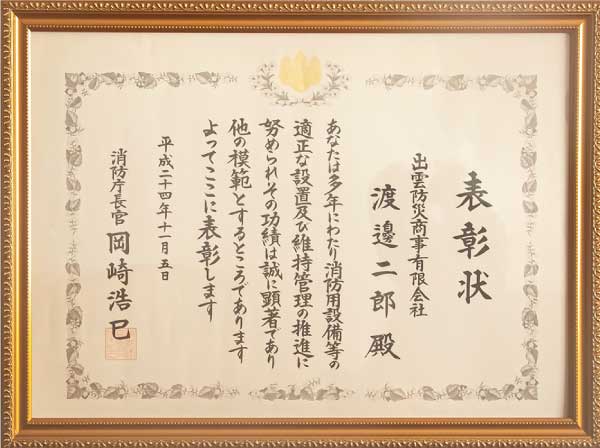 表彰状
出雲防災商事有限会社
渡邊二郎 殿
あなたは多年にわたり消防用設備等の
適正な設置及び維持管理の推進に
努められその功績は誠に顕著であり
他の模範とするところであります
よってここに表彰します
平成二十四年十一月五日
消防庁長官 岡崎浩巳